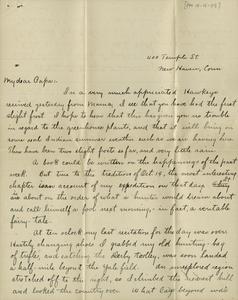 400 Temple St
New Haven, Conn
My dear Papa:
In a very much appreciated Hawkeye
received yesterday from Mama, I see that you have had the first
slight frost. I hope to hear that this has given you no trouble
in regard to the greenhouse plants, and that it will bring on
some real Indian summer weather such as we are having here.
There have been two slight frosts so far, and very little rain.
A book could be written on the happenings of the past
week. But true to the tradition of Oct 14, the most interesting
chapter is an account of my expedition on that day.
are about on the order of what a hunter would dream about
and call himself a fool next morning, - in fact, a veritable
fairy-tale.
At ten o'clock my last recitation for the day was over.
Hastily changing shoes I grabbed my old hunting-bag
of triple, and catching the Derby trolley, was soon landed
a half-mile beyond the Yale field. An unexplored region
stretched off to the right, so I climbed the nearest hill
and looked the country over. What lay beyond was